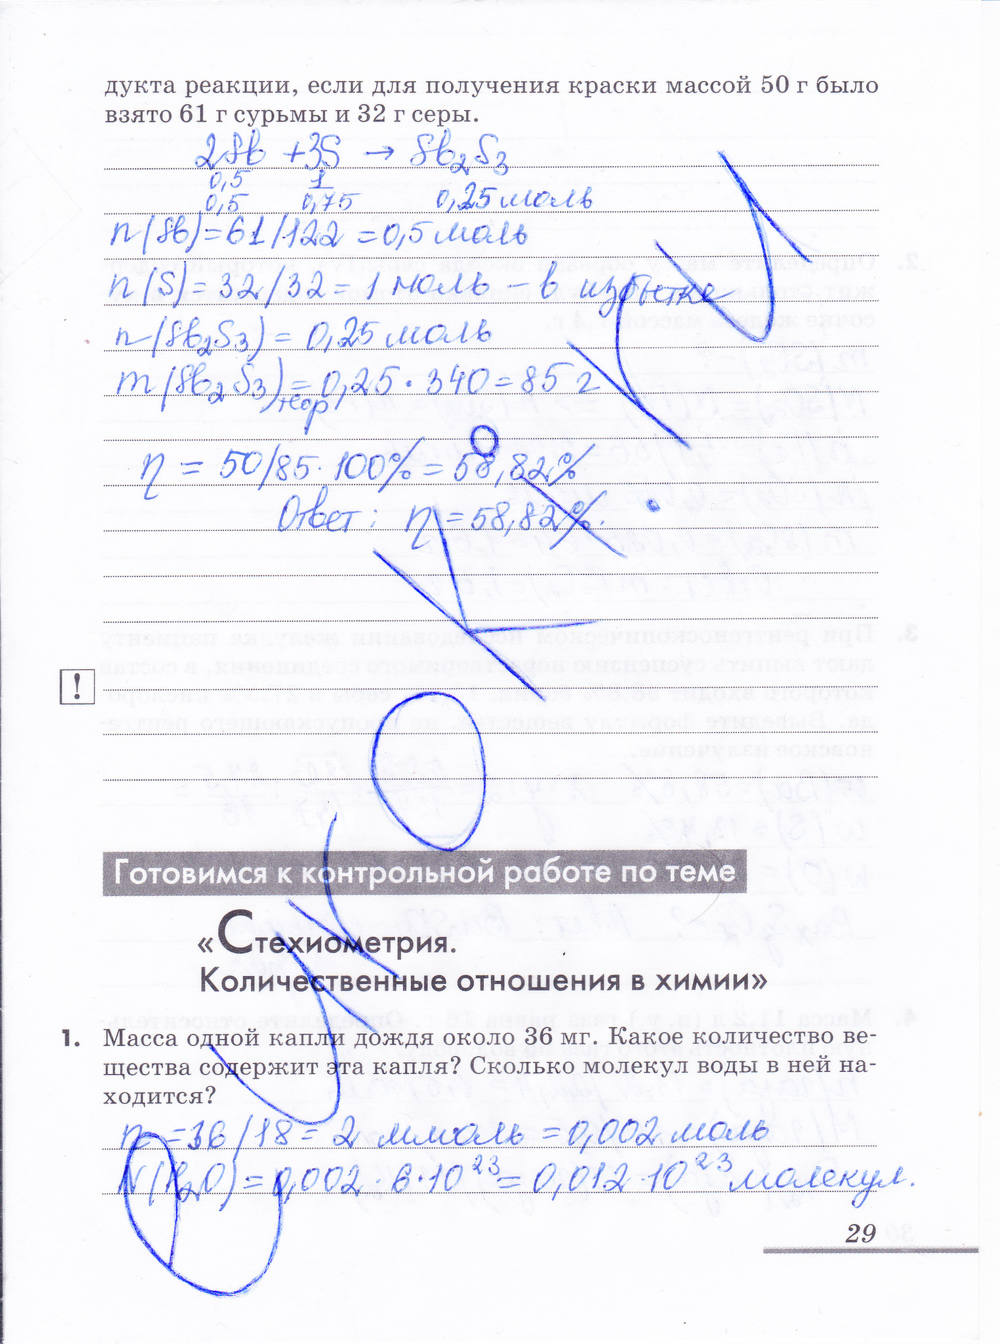 дукта реакции, если для получения краски массой 50 г было
взято 61 г сурьмы и 32 г серы.
2Sb + 3S → Sb₂S₃
0,5 1
0,5 0,75 0,25 моль
n(Sb) = 61/122 = 0,5 моль
n(S) = 32/32 = 1 моль – в избытке
n(Sb₂S₃) = 0,25 моль
m(Sb₂S₃)теор = 0,25 · 340 = 85 г
η = 50/85 · 100% = 58,82%
Ответ: η = 58,82%.
!
Готовимся к контрольной работе по теме
«Стехиометрия.
Количественные отношения в химии»
1. Масса одной капли дождя около 36 мг. Какое количество ве-
щества содержит эта капля? Сколько молекул воды в ней на-
ходится?
n = 36/18 = 2 ммоль = 0,002 моль
N(H₂O) = 0,002 · 6 · 10²³ = 0,012 · 10²³ молекул.
29